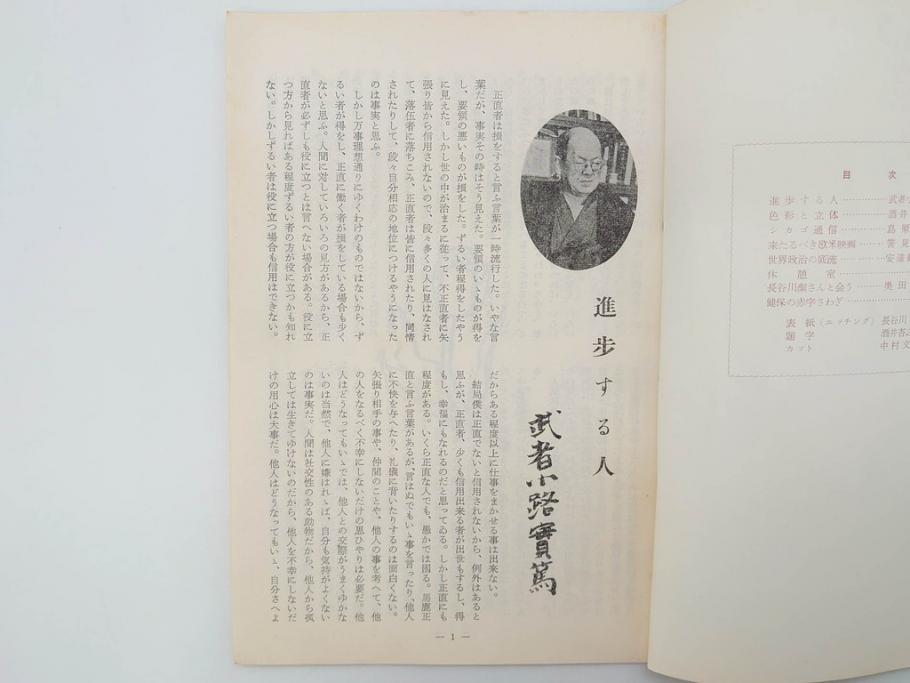 進歩する人
武者小路實篤
正直者は損をすると言ふ言葉が一時流行した。いやな言
葉だが、事実その時はそう見えた。要領のいゝものが得を
し、要領の悪いものが損をした。ずるい者程得をしたやう
に見えた。しかし世の中が治まるに従って、不正直者に矢
張り皆から信用されないので、段々多くの人に見はなされ
て、落伍者に落ちこみ、正直者は皆に信用されたり、同情
されたりして、段々自分相応の地位につけるやうになった
のは事実と思ふ。
しかし万事理想通りにゆくわけのものではないから、ず
るい者が得をし、正直に働く者が損をしている場合も少く
ないと思ふ。人間に対していろいろの見方があるから、正
直者が必ずしも役に立つとは言へない場合がある。役に立
つ方から見ればある程度ずるい者の方が役に立つかも知れ
ない。しかしずるい者は役に立つ場合も信用はできない。
だからある程度以上に仕事をまかせる事は出来ない。
結局僕は正直でないと信用されないから、例外はあると
思ふが、正直者、少くも信用出来る者が出世もするし、得
もし、幸福にもなれるのだと思ってゐる。しかし正直にも
程度がある。いくら正直な人でも、愚かでは困る。馬鹿正
直と言ふ言葉があるが、言はぬでもいゝ事を言ったり、他人
に不快を与へたり、礼儀に背いたりするのは面白くない。
矢張り相手の事や、仲間のことや、他人の事を考へて、他
の人をなるべく不幸にしないだけの思ひやりは必要だ。他
人はどうなってもいゝでは、他人との交際がうまくゆかな
いのは当然で、他人に嫌はれゝば、自分も気持がよくない
のは事実だ。人間は社交性のある動物だから、他人から孤
立しては生きてゆけないのだから、他人を不幸にしないだ
けの用心は大事だ。他人はどうなってもいゝ、自分さへよ
― 1 ―
目次
進歩する人…………武者
色彩と立体…………酒井
シカゴ通信…………島
来たるべき欧米映画……
世界政治の底流……安
休憩室…………
長谷川潔さんと会う……奥田
健保の赤字さわぎ……
表紙(エッチング) 長谷川
題字 酒井
カット 中村文